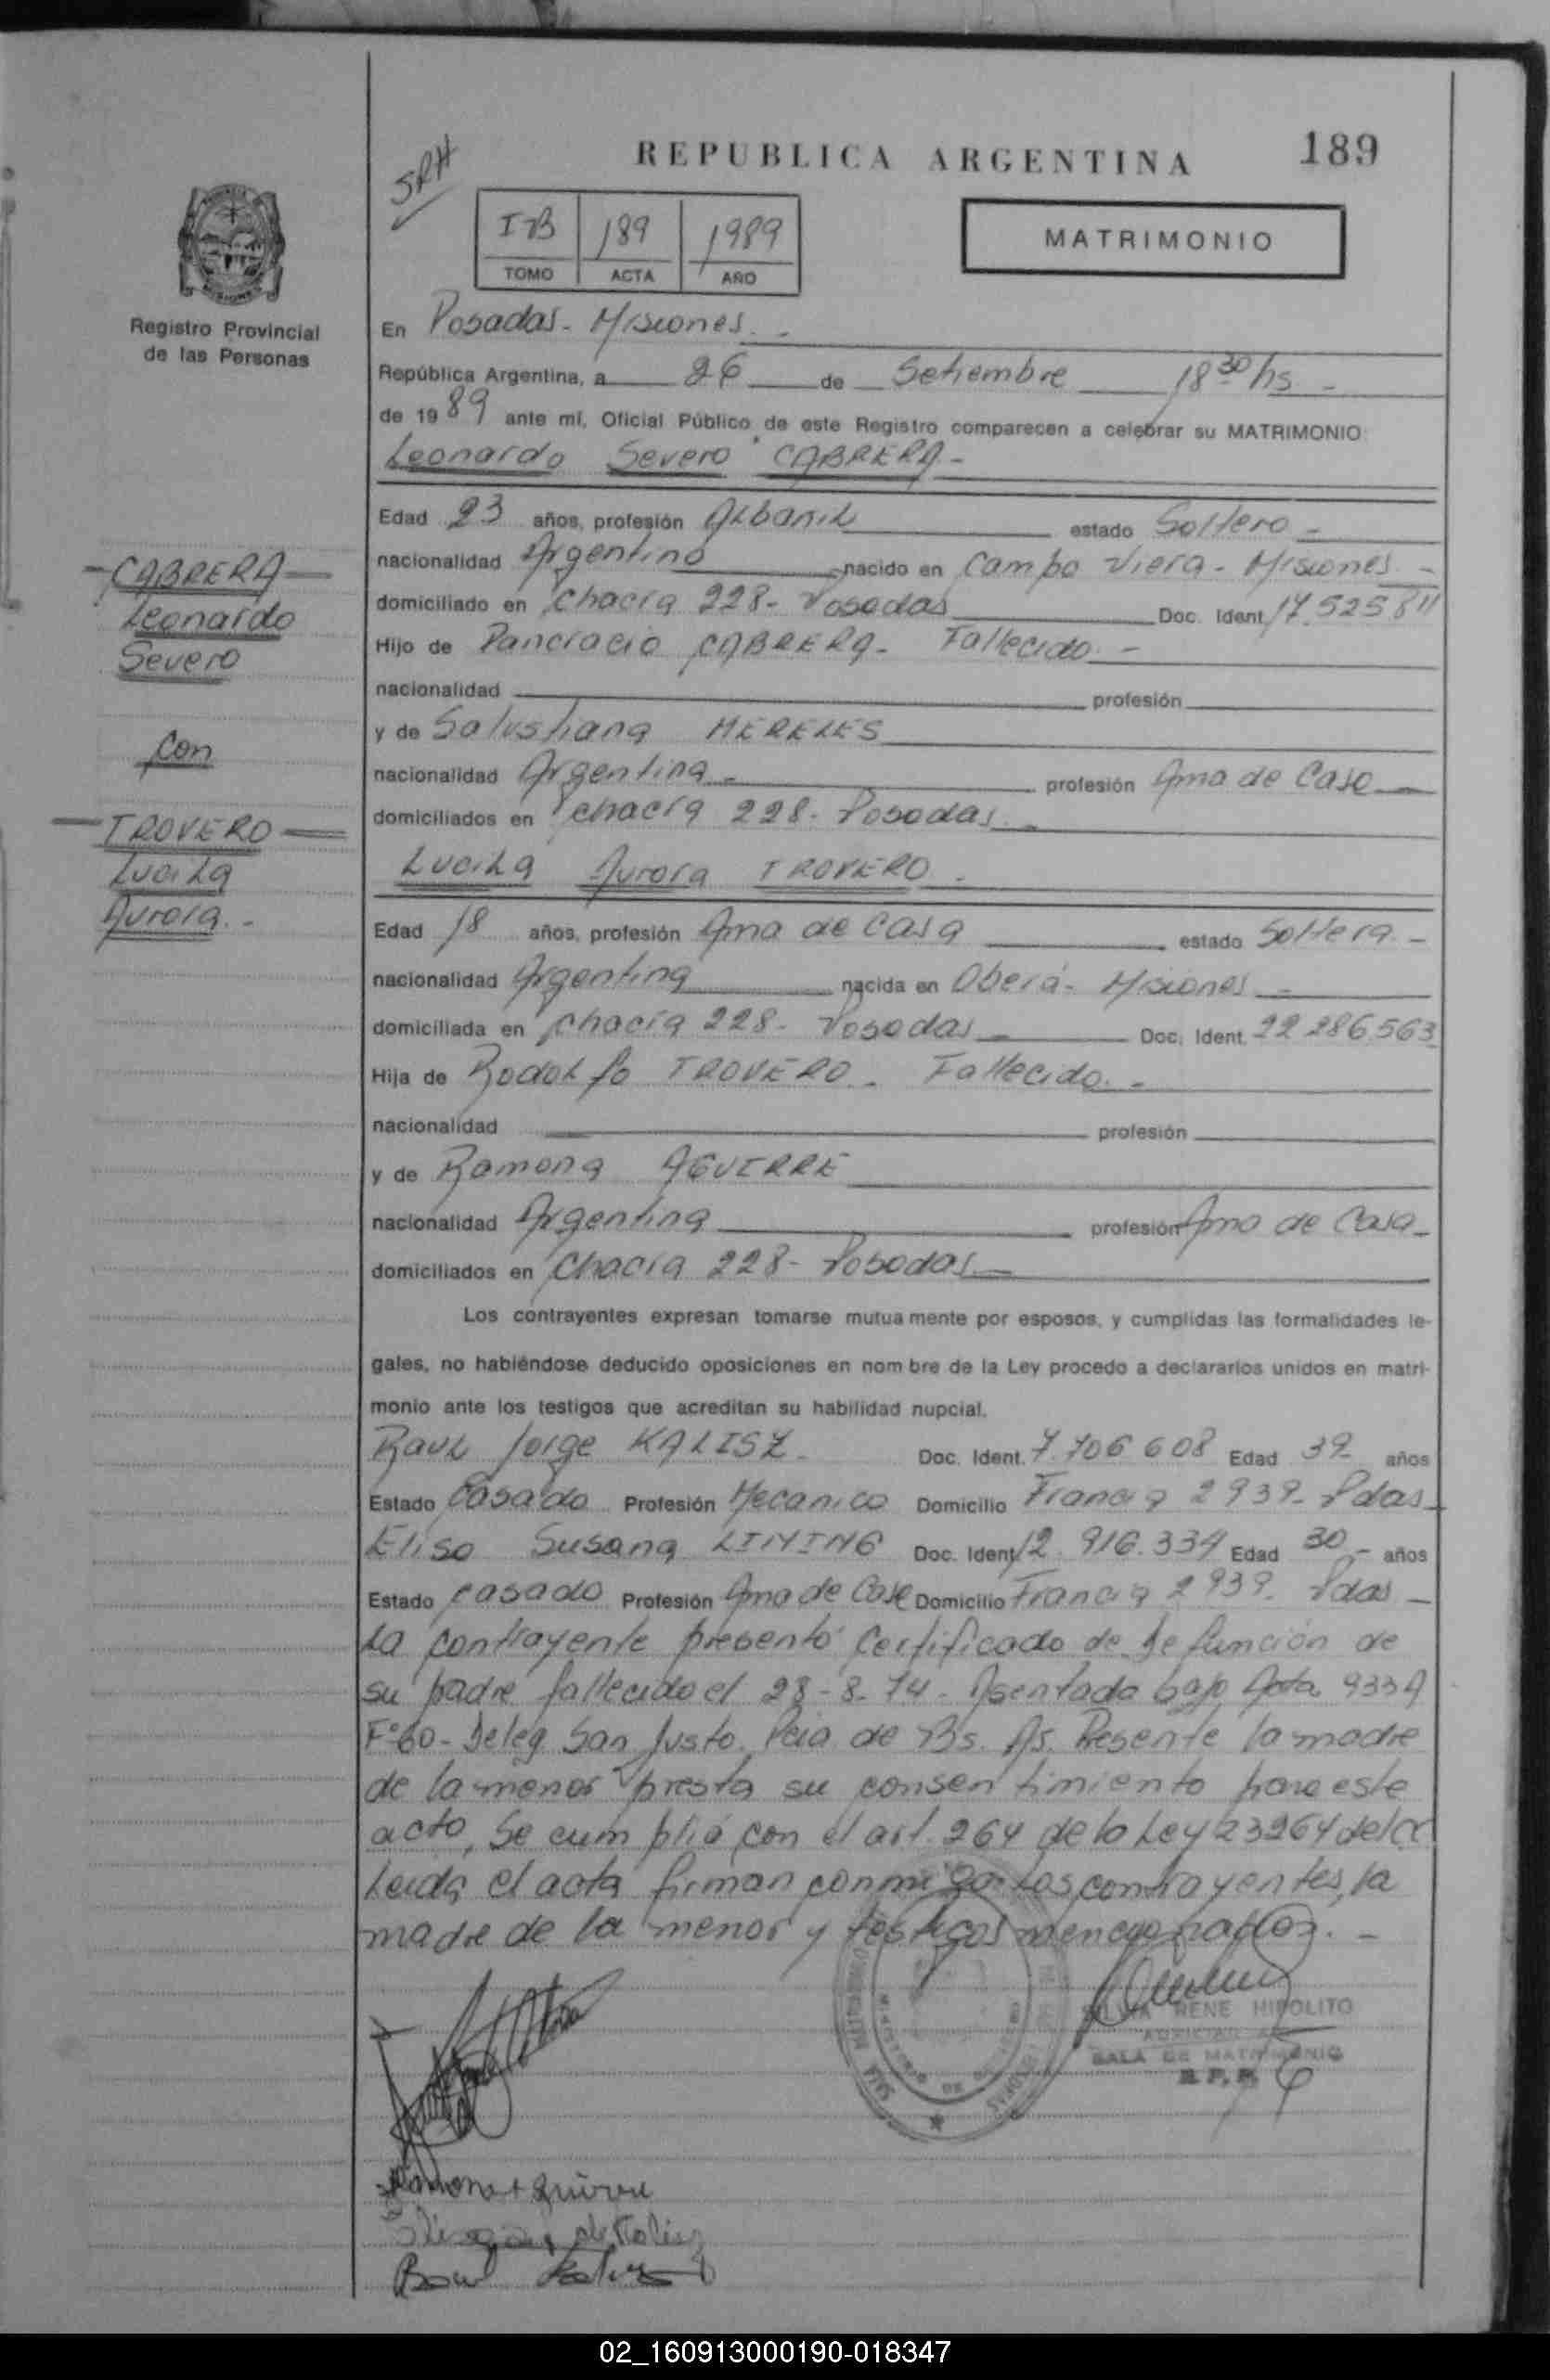 REPUBLICA ARGENTINA
189
SRH
I B 189 1989
TOMO ACTA AÑO
MATRIMONIO
Registro Provincial
de las Personas
En Posadas - Misiones. -
República Argentina, a 26 de Setiembre 18 30 hs -
de 1989 ante mí, Oficial Público de este Registro comparecen a celebrar su MATRIMONIO
Leonardo Severo CABRERA -
Edad 23 años, profesión Albanil estado Soltero -
nacionalidad Argentino nacido en Campo Viera - Misiones. -
domiciliado en Chacra 228 - Posadas Doc. Ident. 17.525.811
Hijo de Pancracio CABRERA - Fallecido. -
nacionalidad profesión
y de Salustiana MERELES
nacionalidad Argentina - profesión Ama de Casa
domiciliados en Chacra 228 - Posadas -
- CABRERA -
Leonardo
Severo
con
- TROVERO -
Lucila
Aurora. -
Lucila Aurora TROVERO -
Edad 18 años, profesión Ama de Casa estado Soltera. -
nacionalidad Argentina nacida en Oberá - Misiones -
domiciliada en Chacra 228 - Posadas Doc. Ident. 22.286.563
Hija de Rodolfo TROVERO - Fallecido. -
nacionalidad profesión
y de Ramona AGUIRRE
nacionalidad Argentina profesión Ama de Casa -
domiciliados en Chacra 228 - Posadas
Los contrayentes expresan tomarse mutuamente por esposos, y cumplidas las formalidades le-
gales, no habiéndose deducido oposiciones en nombre de la Ley procedo a declararlos unidos en matri-
monio ante los testigos que acreditan su habilidad nupcial.
Raul Jorge KALISZ - Doc. Ident. 7.706.608 Edad 39 años
Estado Casado Profesión Mecanico Domicilio Francia 2939 - Pdas -
Elisa Susana LIMING Doc. Ident. 12.916.334 Edad 30 - años
Estado casado Profesión Ama de Casa Domicilio Francia 2939 - Pdas -
La contrayente presentó Certificado de Defunción de
su padre fallecido el 28-8-74 - Asentada bajo Acta 933A
Fº60 - Deleg San Justo. Pcia de Bs. As. Presente la madre
de la menor presta su consentimiento para este
acto, Se cumplió con el art. 264 de la Ley 23264 del CC
Leida el acta firman conmigo los contrayentes, la
madre de la menor y testigos mencionados. -
SILVA RENE HIPOLITO
SALA DE MATRIMONIO
R.P.P.
Ramona Aguirre
02_160913000190-018347